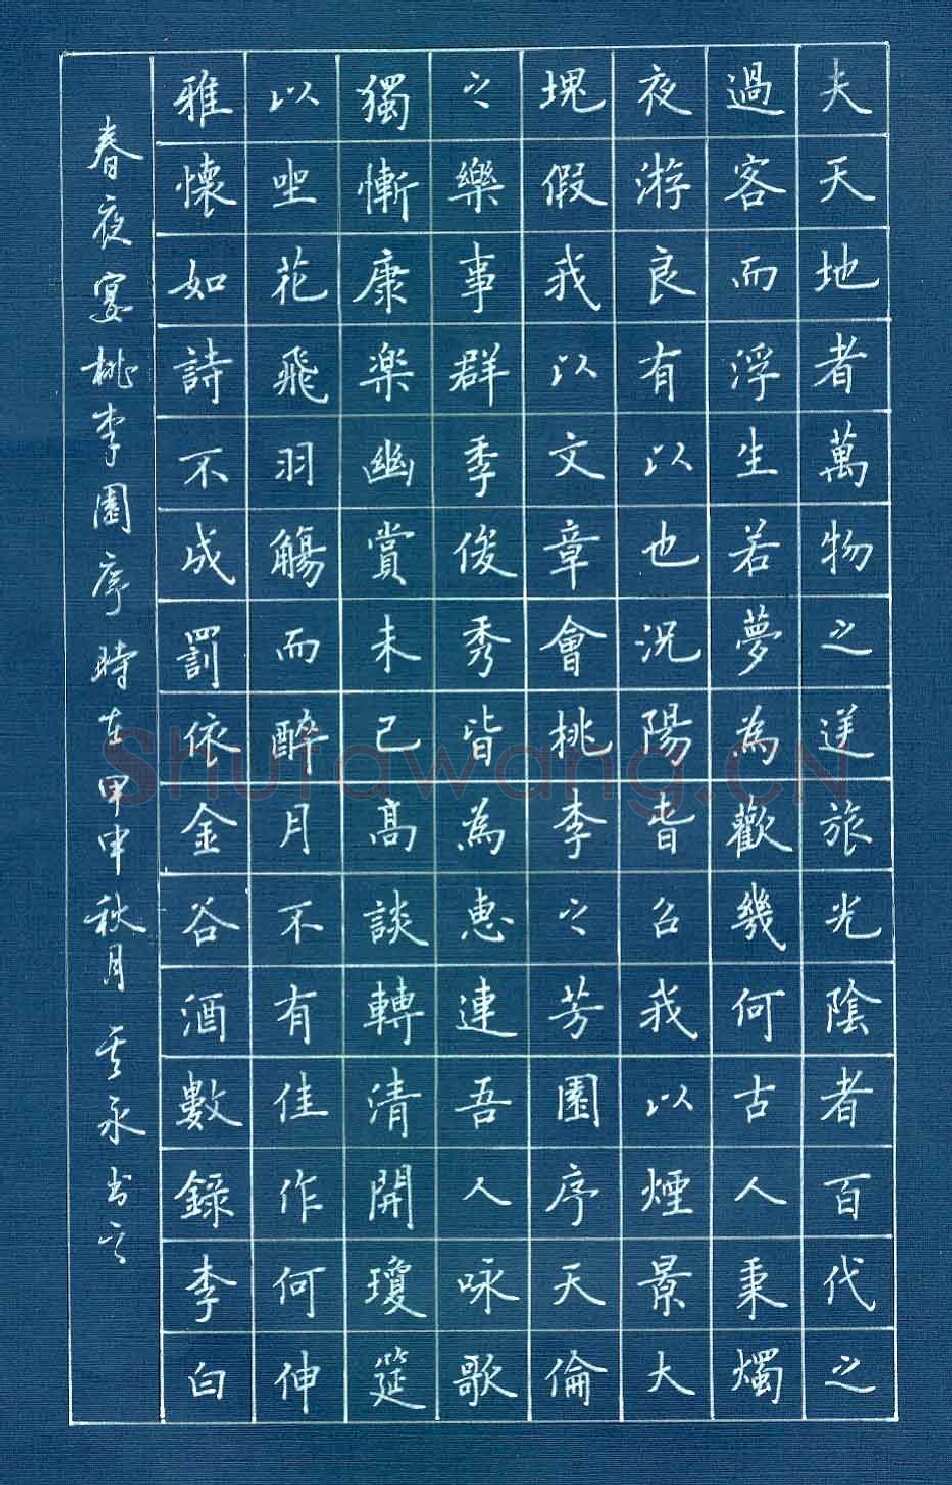 夫天地者萬物之逆旅光陰者百代之
過客而浮生若夢為歡幾何古人秉燭
夜游良有以也況陽春召我以煙景大
塊假我以文章會桃李之芳園序天倫
之樂事群季俊秀皆為惠連吾人咏歌
獨慚康楽幽賞未已高談轉清開瓊筵
以坐花飛羽觴而醉月不有佳作何伸
雅懷如詩不成罰依金谷酒數錄李白
春夜宴桃李園序時在甲申秋月永书
Shufawang.CN